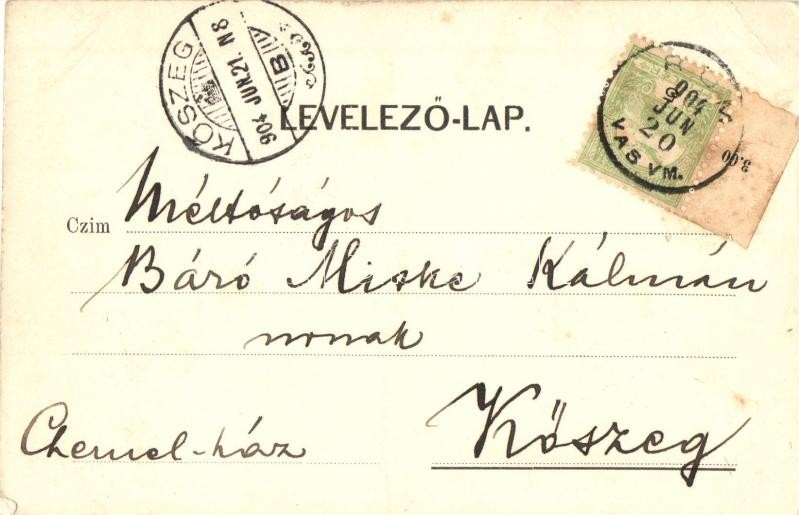 KŐSZEG
904 JUN. 21. N 8
B
LEVELEZŐ-LAP.
904
JUN
20
VAS VM.
3.00
Czim Méltóságos
Báró Miske Kálmán
nonak
Kőszeg
Chernel-ház